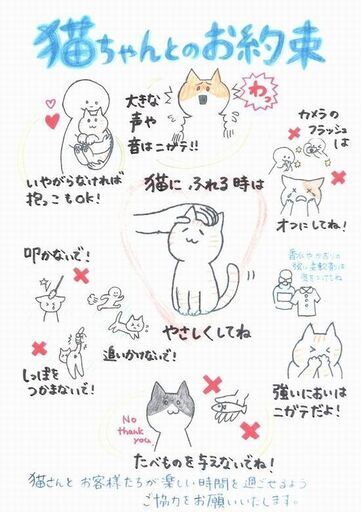 猫ちゃんとのお約束
大きな
声や
音はニガテ!!
わっ
カメラの
フラッシュ
は
オフにしてね!
いやがらなければ
抱っこもOK!
猫に ふれる時は
やさしくしてね
叩かないで!
追いかけないで!
しっぽを
つかまないで!
香水やかおりの
強い柔軟剤は
気をつけてね
強いにおいは
ニガテだよ!
No
thank
you
たべものを与えないでね!
猫さんと お客様たちが 楽しい時間を 過ごせるよう
ご協力をお願いいたします。